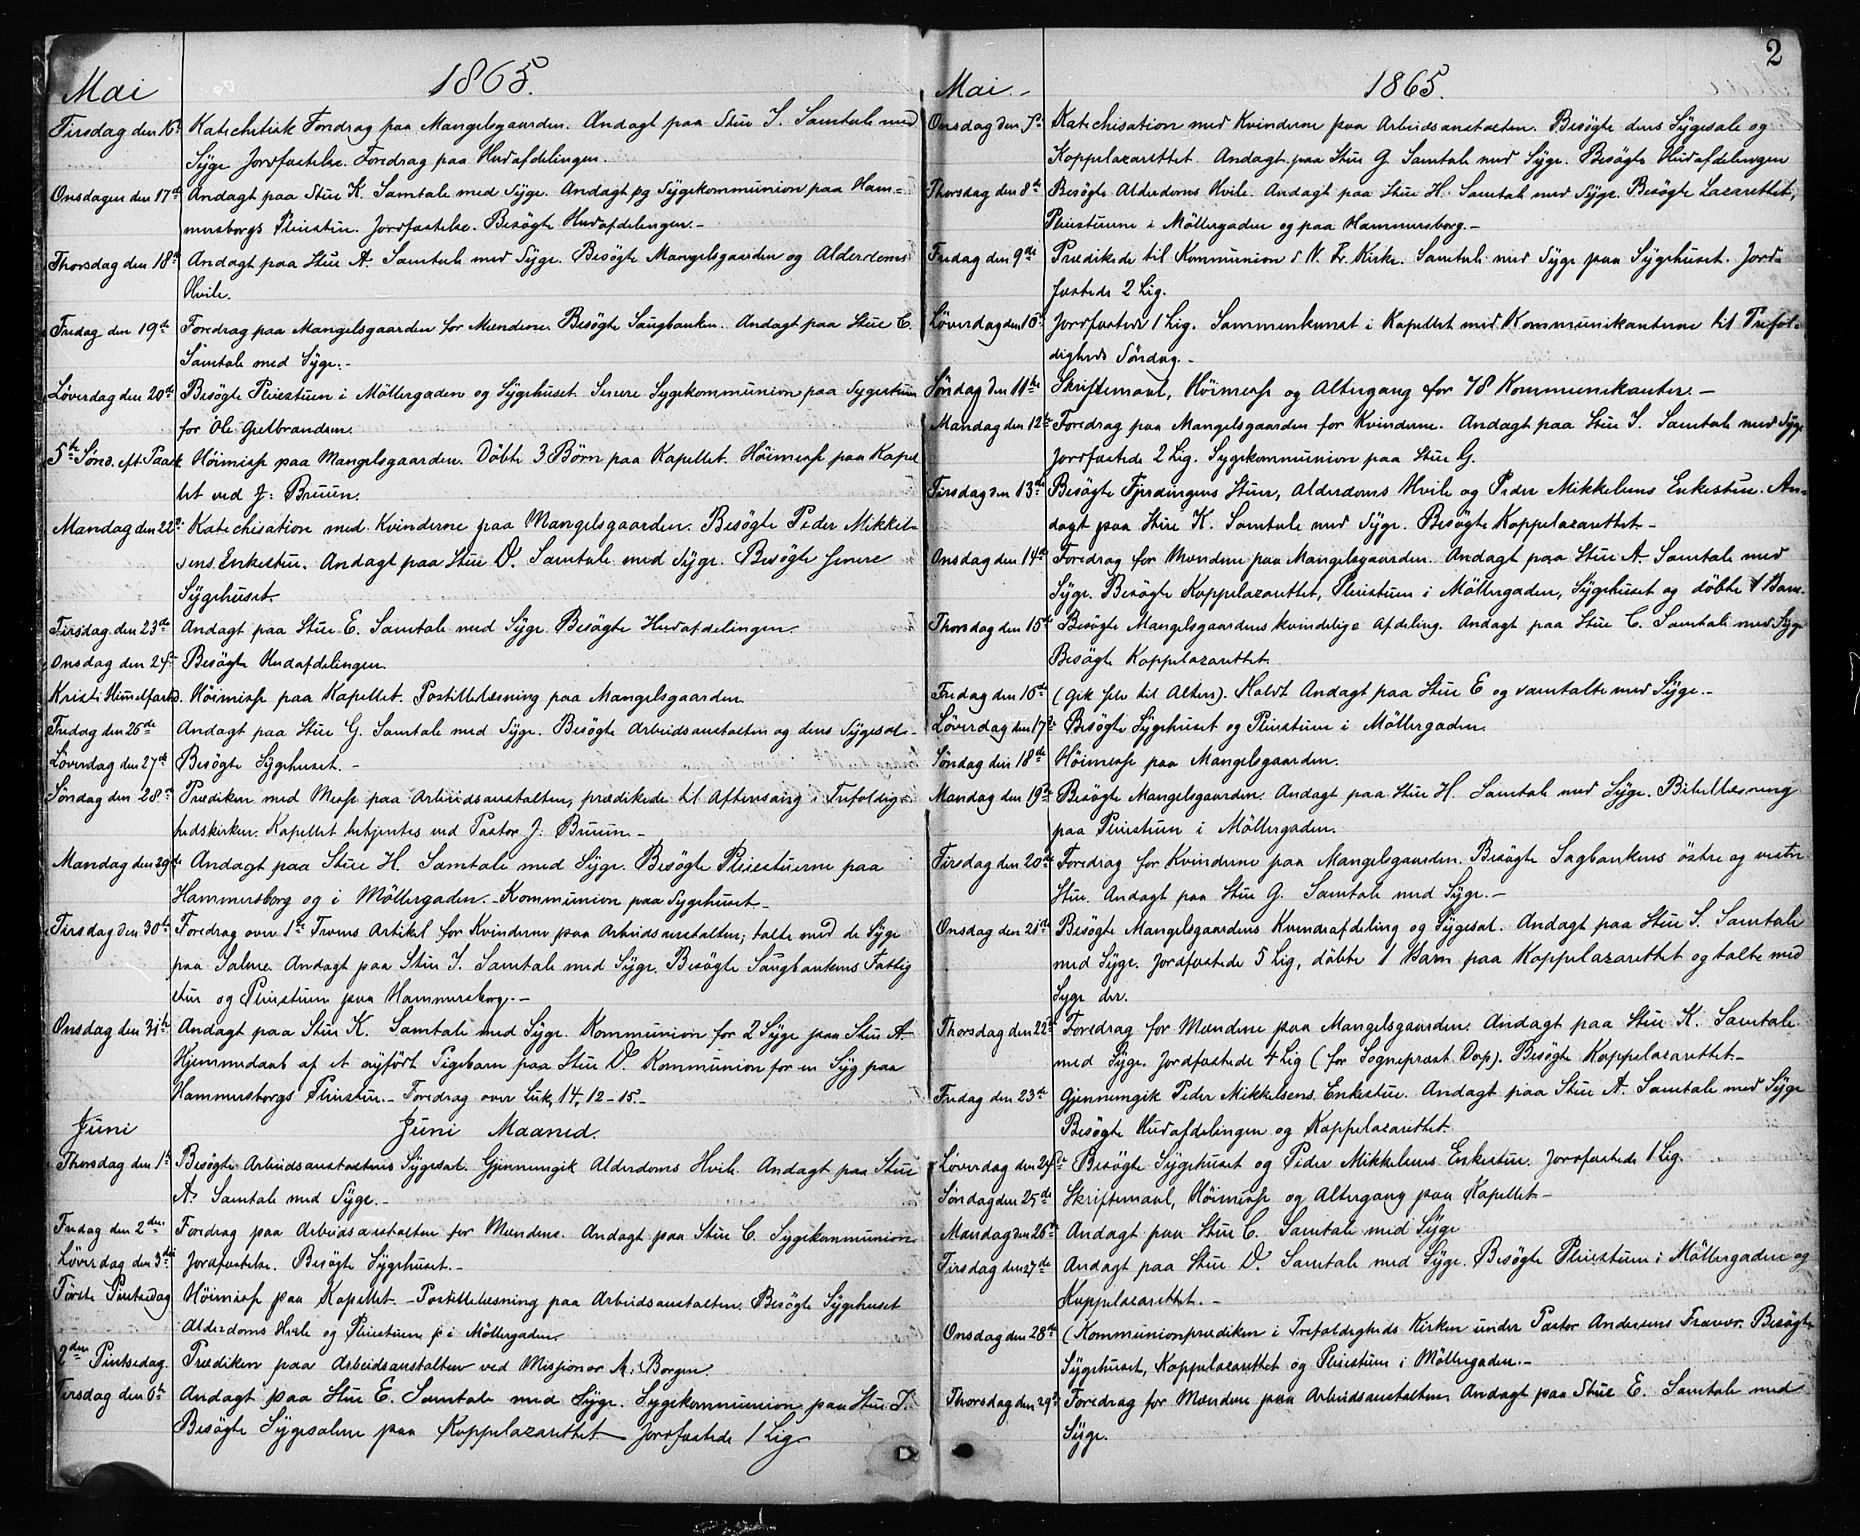 Mai 1865.
Tirsdag den 16de Katechetisk Foredrag paa Mangelsgaarden. Andagt paa Stue I. Samtale med
Syge Jordfæstelse. Foredrag paa Hudafdelingen.
Onsdagen den 17de Andagt paa Stue K. Samtale med Syge. Andagt og Sygekommunion paa Ham=
mersborgs Pleiestue. Jordfæstelse. Besøgte Hudafdelingen. -
Thorsdag den 18de Andagt paa Stue A. Samtale med Syge. Besøgte Mangelsgaarden og Alderdoms
Hvile.
Fredag den 19de Foredrag paa Mangelsgaarden for Mændene. Besøgte Saugbanken. Andagt paa Stue C.
Samtale med Syge. -
Løverdag den 20de Besøgte Pleiestuen i Möllergaden og Sygehuset. Senere Sygekommunion paa Sygestuen
for Ole Gulbrandsen.
5te Sønd. eft. Paask. Höimesse paa Mangelsgaarden. Döbte 3 Børn paa Kapellet. Höimesse paa Kapel
let ved J: Bruun.
Mandag den 22de Katechisation med Kvinderne paa Mangelsgaarden. Besögte Peder Mikkel-
sens Enkestue. Andagt paa Stue D. Samtale med Syge. Besögte senere
Sygehuset.
Tirsdag den 23de Andagt paa Stue E. Samtale med Syge. Besögte Hudafdelingen.
Onsdag den 24de Besögte Hudafdelingen.
Kristi Himmelfartsd. Höimesse paa Kapellet. Postillelæsning paa Mangelsgaarden.
Fredag den 26de Andagt paa Stue G. Samtale med Syge. Besögte Arbeidsanstalten og dens Sygesal -
Løverdag den 27de Besögte Sygehuset. -
Søndag den 28de Prædiken med Messe paa Arbeidsanstalten, prædikede til Aftensang i Trefoldig=
hedskirken. Kapellet betjentes ved Pastor J: Bruun -
Mandag den 29de Andagt paa Stue H. Samtale med Syge. Besögte Pleiestuerne paa
Hammersborg og i Möllergaden. - Kommunion paa Sygehuset -
Tirsdag den 30te Foredrag over 1ste Troens Artikel for Kvinderne paa Arbeidsanstalten; talte med de Syge
paa Salene. Andagt paa Stue I. Samtale med Syge. Besögte Saugbankens Fattig
stue og Pleiestuen paa Hammersborg. -
Onsdag den 31te Andagt paa Stue K. Samtale med Syge. Kommunion for 2 Syge paa Stue A.
Hjemmedaab af et nyfödt Pigebarn paa Stue D. Kommunion for en Syg paa
Hammersborgs Pleiestue. - Foredrag over Luk, 14, 12-15. -
Juni Juni Maaned.
Thorsdag den 1ste Besögte Arbeidsanstaltens Sygesal. Gjennemgik Alderdoms Hvile. Andagt paa Stue
A. Samtale med Syge. -
Fredag den 2den Foredrag paa Arbeidsanstalten for Mændene. Andagt paa Stue C. Sygekommunion
Løverdag den 3die Jordfæstelse. Besögte Sygehuset. -
Første Pintsedag Höimesse paa Kapellet. - Postillelæsning paa Arbeidsanstalten. Besögte Sygehuset
Alderdoms Hvile og Pleiestuen i Möllergaden.
2den Pintsedag. Prædiken paa Arbeidsanstalten ved Missionær A: Borgen.
Tirsdag den 6te Andagt paa Stue E. Samtale med Syge. Sygekommunion paa Stue I.
Besögte Sygesalene paa Koppelazarettet. Jordfæstede 1 Lig.
2
Mai. - 1865.
Onsdag den 7de Katechisation med Kvinderne paa Arbeidsanstalten. Besögte dens Sygesale og
Koppelazarettet. Andagt paa Stue G. Samtale med Syge. Besögte Hudafdelingen
Thorsdag den 8de Besögte Alderdoms Hvile. Andagt paa Stue H. Samtale med Syge. Besögte Lazarettet,
Pleiestuerne i Möllergaden og paa Hammersborg. -
Fredag den 9de Prædikede til Kommunion i V. Fr. Kirke. Samtale med Syge paa Sygehuset. Jord-
fæstede 2 Lig.
Løverdag den 10de Jordfæstede 1 Lig. Sammenkomst i Kapellet med Kommunikanterne til Trefol-
digheds Söndag. -
Söndag den 11te Skriftemaal, Höimesse og Altergang for 78 Kommunikanter. -
Mandag den 12te Foredrag paa Mangelsgaarden for Kvinderne. Andagt paa Stue I. Samtale med Syge
Jordfæstede 2 Lig. Sygekommunion paa Stue G.
Tirsdag den 13de Besögte Fjerdingens Stuer, Alderdoms Hvile og Peder Mikkelsens Enkestue. An-
dagt paa Stue K. Samtale med Syge. Besögte Koppelazarettet -
Onsdag den 14de Foredrag for Mændene paa Mangelsgaarden. Andagt paa Stue A. Samtale med
Syge. Besögte Koppelazarettet, Pleiestuen i Möllergaden, Sygehuset og döbte 1 Barn.
Thorsdag den 15de Besögte Mangelsgaardens kvindelige Afdeling. Andagt paa Stue C. Samtale med Syge
Besögte Koppelazarettet.
Fredag den 16de (Gik selv til Alters). Holdt Andagt paa Stue E og samtalte med Syge. -
Løverdag den 17de Besögte Sygehuset og Pleiestuen i Möllergaden.
Søndag den 18de Höimesse paa Mangelsgaarden.
Mandag den 19de Besögte Mangelsgaarden. Andagt paa Stue H. Samtale med Syge. Bibellæsning
paa Pleiestuen i Möllergaden.
Tirsdag den 20de Foredrag for Kvinderne paa Mangelsgaarden. Besögte Sagbankens östre og vestre
Stue. Andagt paa Stue G. Samtale med Syge. -
Onsdag den 21de Besögte Mangelsgaardens Kvindeafdeling og Sygesal. Andagt paa Stue I. Samtale
med Syge. Jordfæstede 5 Lig, döbte 1 Barn paa Koppelazarettet og talte med
Syge der.
Thorsdag den 22de Foredrag for Mændene paa Mangelsgaarden. Andagt paa Stue K. Samtale
med Syge. Jordfæstede 4 Lig (for Sogneprest Dop). Besögte Koppelazarettet -
Fredag den 23de Gjennemgik Peder Mikkelsens Enkestue. Andagt paa Stue A. Samtale med Syge
Besögte Hudafdelingen og Koppelazarettet.
Løverdag den 24de Besögte Sygehuset og Peder Mikkelsens Enkestue. Jordfæstede 1 Lig.
Søndag den 25de Skriftemaal, Höimesse og Altergang paa Kapellet -
Mandag den 26de Andagt paa Stue C. Samtale med Syge
Tirsdag den 27de Andagt paa Stue D. Samtale med Syge. Besögte Pleiestuen i Möllergaden og
Koppelazarettet. -
Onsdag den 28de (Kommunionprædiken i Trefoldigheds Kirken under Pastor Andersens Fravær. Besögte
Sygehuset, Koppelazarettet og Pleiestuen i Möllergaden. -
Thorsdag den 29de Foredrag for Mændene paa Arbeidsanstalten. Andagt paa Stue E. Samtale med
Syge.